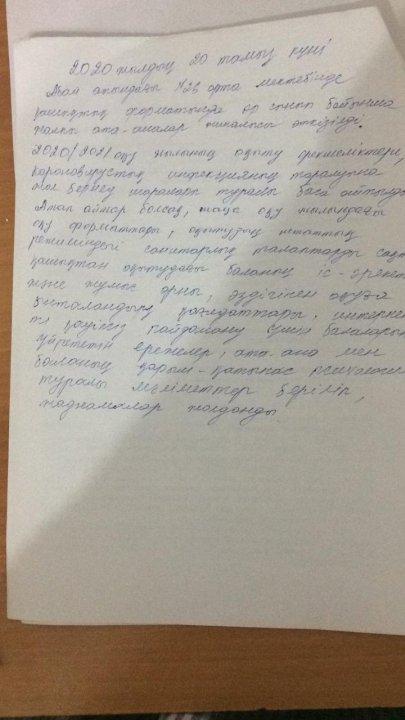 2020 жылдың 20 тамыз күні
Абай атындағы №23 орта мектебінде
қашықтық форматында әр сынып бойынша
жалпы ата-аналар жиналысы өткізілді.
2020/2021 оқу жылының оқыту ерекшеліктері,
коронавирустық инфекцияның таралуына
жол бермеу шаралары туралы баса айтылды
Атап айтар болсақ, жаңа оқу жылындағы
оқу форматтары, оқытудың штаттық
режиміндегі санитарлық талаптарды сақ
қашықтан оқытудағы баланың іс-әрекет
және жұмыс орны, өздігінен оқуға
ынталандыру қағидаттары, интернет
ті қауіпсіз пайдалану үшін балаларын
үйрететін ережелер, ата-ана мен
баланың қарым-қатынас психология
туралы мәліметтер беріліп,
жаднамалар жолданды